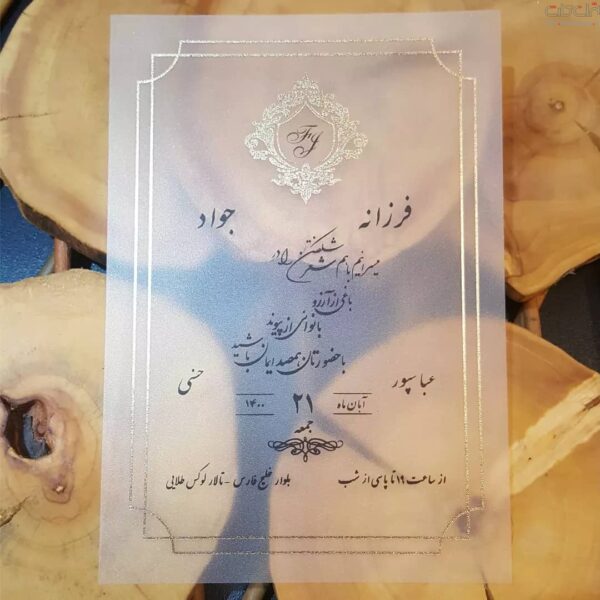 FJ
فرزانه جواد
میسرائیم با هم شعر شکفتن را در
باغی از آرزو
با نوائی از پیوند
با حضورتان همصدایمان باشید
عباسپور حسنی
آبان ماه ۲۱ ۱۴۰۰
جمعه
از ساعت ۱۹ تا پاسی از شب بلوار خلیج فارس - تالار لوکس طلایی